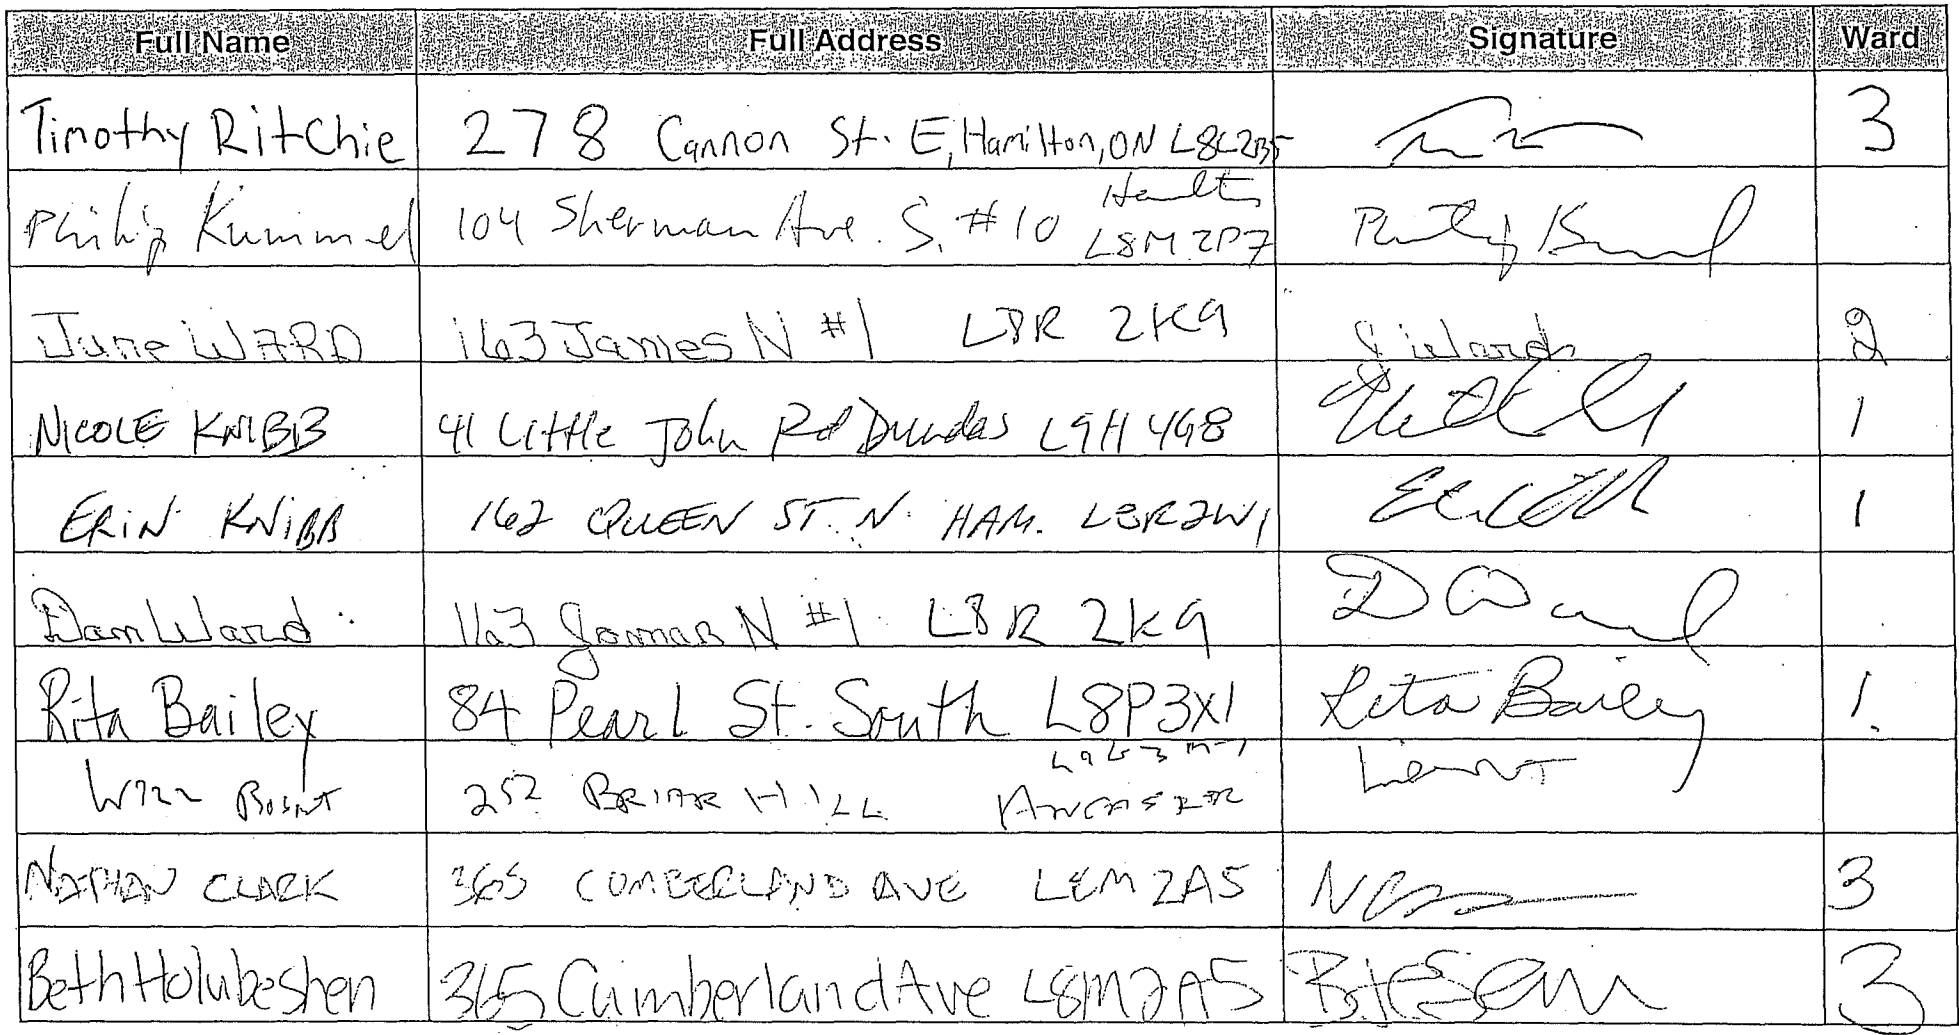 Full Name Full Address Signature Ward
Timothy Ritchie 278 Cannon St. E, Hamilton, ON L8L2B5 3
Philip Kummel 104 Sherman Ave. S. #10 L8M 2P7
June WARD 163 James N #1 L8R 2K9 J Ward 2
NICOLE KNIBB 41 Little John Rd Dundas L9H 4G8 1
ERIN KNIBB 162 QUEEN ST. N. HAM. L8R2W1 1
Dan Ward 163 James N #1 L8R 2K9 D Ward
Rita Bailey 84 Pearl St. South L8P3X1 Rita Bailey 1
252 BRIAR HILL ANCASTER
NATHAN CLARK 365 CUMBERLAND AVE L8M 2A5 3
Beth Holubeshen 365 Cumberland Ave L8M2A5 3